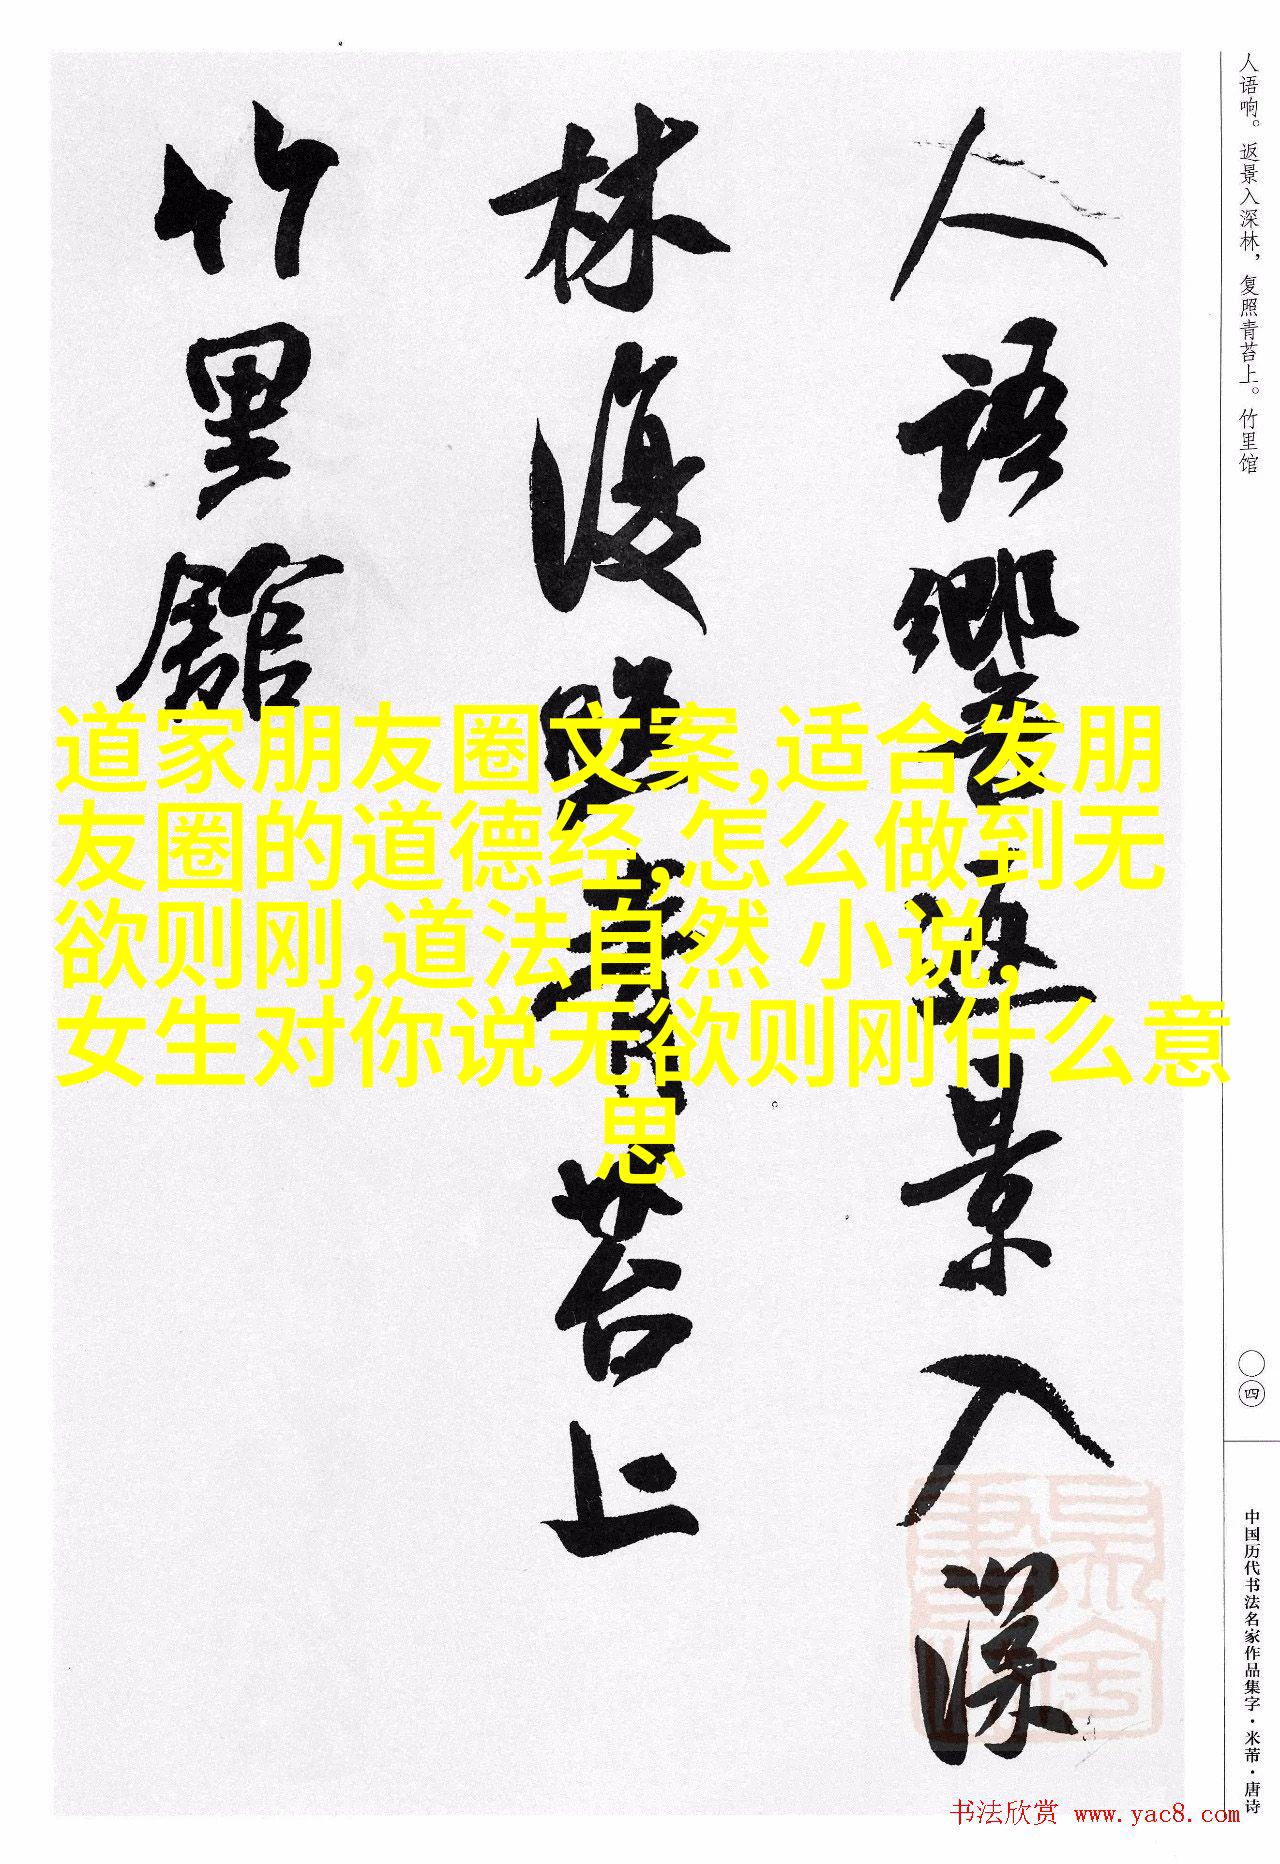 人语响。返景入深林，复照青苔上。竹里馆
人語響返景入深
林復照青苔上
竹里館
道家朋友圈文案,适合发朋
友圈的道德经,怎么做到无
欲则刚,道法自然 小说,
女生对你说无欲则刚什么意
思
〇四
中国历代书法名家作品集字·米芾·唐诗
书法欣赏 www.yac8.com